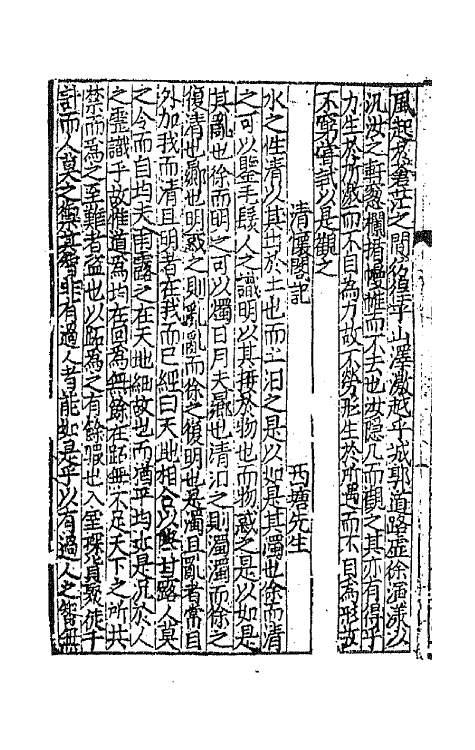 風起於蒼茫之間彷徨乎山澤激越乎城郭道路虛徐演漾以
汎汝之軒窓欄楯幔帷而不去也汝隱几而觀之其亦有得乎
力生於所激而不自為力故不勞形生於所遇而不自為形故
不窮嘗試以是觀之
清暖閣記 西塘先生
水之性清以其出於土也而土汩之是以如是其濁也徐而清
之可以鑒手髮人之識明以其接於物也而物惑之是以如是
其亂也徐而明之可以燭日月夫鼎也清汩之則濁濁而徐之
復清也鄉也明惑之則亂亂而徐之復明也是濁且亂者常自
外加我而清且明者在我而已經曰天地相合以降甘露人莫
之令而自均夫甘露之在天地細故也而猶平均如是況於人
之靈識乎故惟道為均在回為無餘在跖無不足天下之所共
禁而為之至難者盜也以跖為之有餘暇也入室探囊聚徒千
計而人莫之禦其智非有過人者能如是乎以有過人之智無